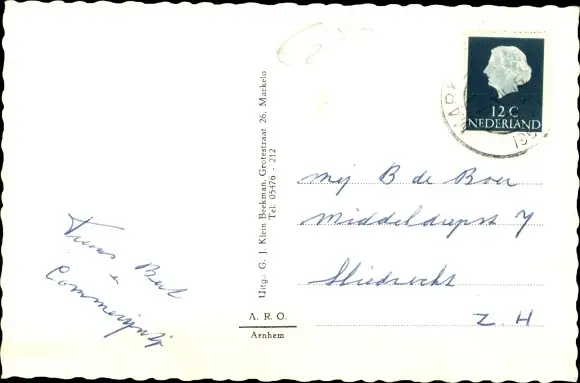 12 C
NEDERLAND
MARK
Uitg.: G. J. Klein Beekman, Grotestraat 26, Markelo
Tel. 05476 - 212
A. R. O.
Arnhem
mej B de Boer
Middeldiepst 7
Sliedrecht
Z. H